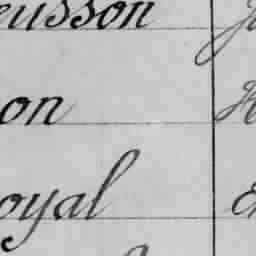 eusson
on
oyal